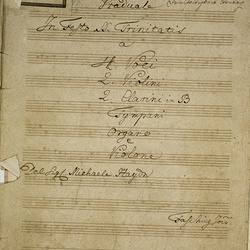 Graduale
In Festo SS. Trinitatis
a
4 Voci
2. Violini
2. Clarini in B
Tympani
Organo
e
Violone
Del Sigl Michaele Haydn